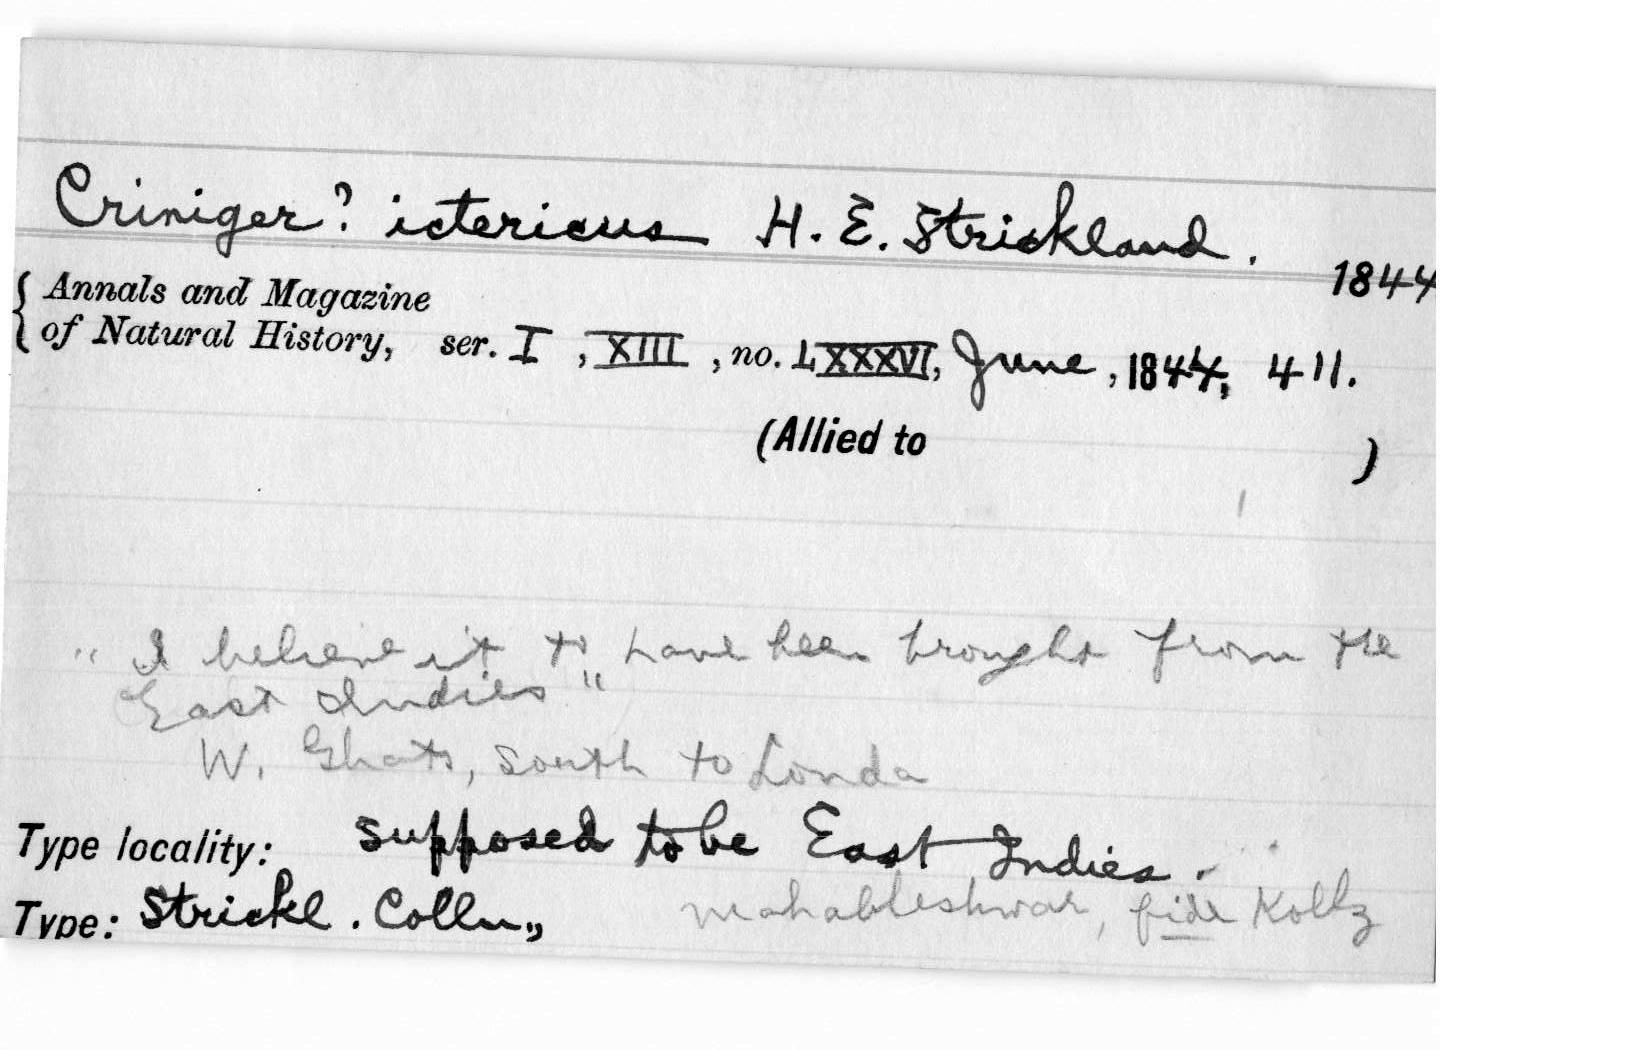 Criniger? ictericus H. E. Strickland.
1844
{ Annals and Magazine
of Natural History, ser. I, XIII, no. LXXXVI, June, 1844, 411.
(Allied to )
" I believe it to have been brought from the
East Indies "
W. Ghats, south to Londa
Type locality: supposed to be East Indies.
Type: Strickl. Colln., Mahableshwar, fide